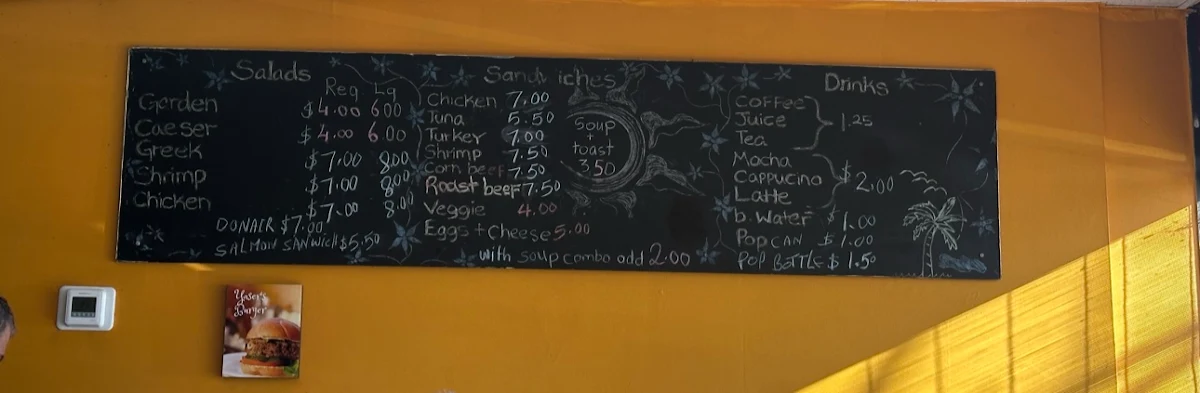 Salads
Reg Lg
Garden $4.00 6.00
Caeser $4.00 6.00
Greek $7.00 8.00
Shrimp $7.00 8.00
Chicken $7.00 8.00
DONAIR $7.00
SALMON SANWICH $5.50
Sandwiches
Chicken 7.00
Tuna 5.50
Turkey 7.00
Shrimp 7.50
Corn beef 7.50
Roast beef 7.50
Veggie 4.00
Eggs + Cheese 5.00
with soup combo add 2.00
soup
+
toast
3.50
Drinks
Coffee
Juice 1.25
Tea
Mocha
Cappucino $2.00
Latte
b. Water $1.00
Pop CAN $1.00
POP BOTTLE $1.50
Yaser's
Burger